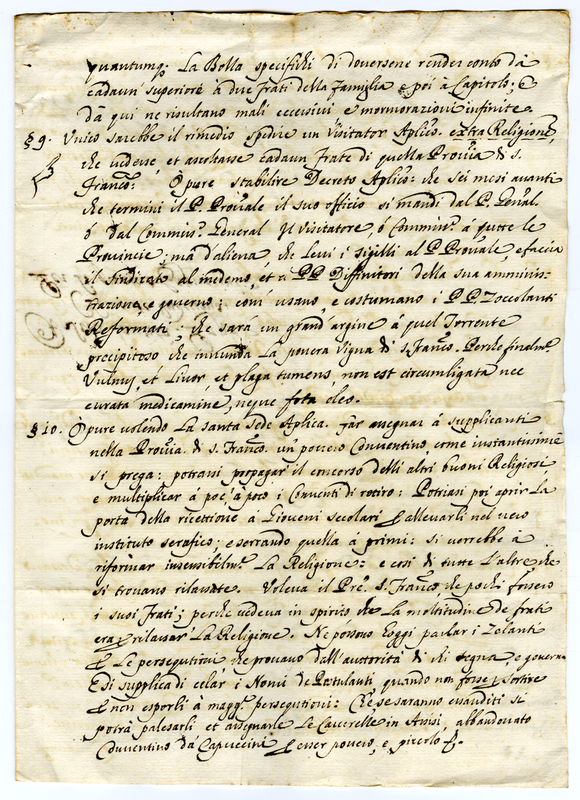 quantumq; La Bolla specifichi di doversene render conto da
cadaun superiore à due frati della famiglia e poi à Capitolo; e
da qui ne risultano mali eccessivi e mormorazioni infinite.
§ 9. Unico sarebbe il rimedio spedire un Visitator Aplico. extra Religionem,
che vedesse, et ascoltasse cadaun frate di quella Provia di s.
Franco: Opure stabilire Decreto Aplico: che sei mesi avanti
che termini il P. Provale il suo officio si mandi dal P. Genal.
ò dal Commisso. General Il Visitatore, ò Commisso. à tutte le
Provincie; mà d'aliena, che Levi i sigilli al P. Provale, e faccia
il sindicato al medemo, et a PP. Diffinitori della sua amminis-
trazione, e governo; com' usano, e costumano i PP. Zoccolanti
Reformati; che sarà un grand' argine à quel Torrente
precipitoso che innunda La povera Vigna di s. Franco. Perche finalmte.
Vulnus, et Livor, et plaga tumens, non est circumligata nec
curata medicamine, neque fota oleo.
§ 10. Opure volendo La santa Sede Aplica. far assegnar à supplicanti
nella Provia. di s. Franco. un povero Conventino come instantissime
si prega: potrassi propagar il concorso delli altri buoni Religiosi
e multiplicar à poc' à poco i Conventi di retiro: Potriasi poi aprir La
porta della ricettione à Gioveni secolari p allevarli nel vero
instituto serafico; e serrando quella à primi: si verrebbe à
riformar insensibilmte. La Religione: e così di tutte L'altre, che
si trovano rilassate. Voleva il Pre. s. Franco, che pochi fossero
i suoi frati; perche vedeva in spirito che La moltitudine de frati
era p rilassar La Religione. Ne possono Hoggi parlar i Zelanti
p Le persecutioni che provano dall'autorità di chi regna, e governa
E si supplica di celar i Nomi de Postulanti quando non fosse p sortire
p non esporli à maggri. persecutioni: Che se saranno esauditi si
potrà palesarli et assegnarle Le Carcerelle in Assisi, abbandonato
Conventino da Capuccini p esser povero, e picciolo